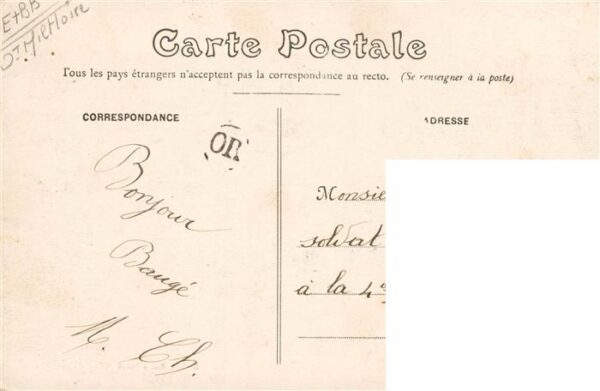 E+BB
Carte Postale
Tous les pays étrangers n'acceptent pas la correspondance au recto. (Se renseigner à la poste)
CORRESPONDANCE
ADRESSE
OR
Bonjour
Baugé
M. Ch.
Monsie
soldat
à la 4